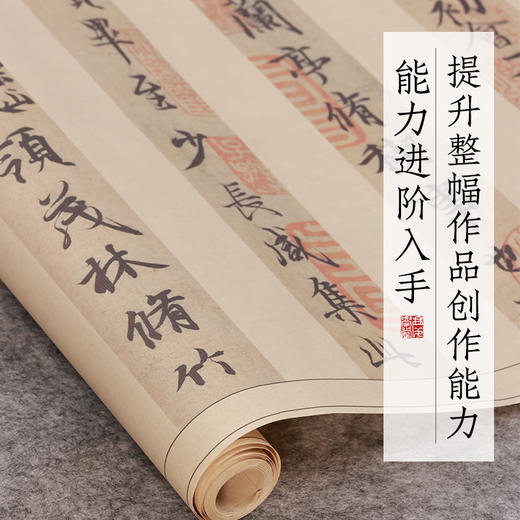 提升整幅作品创作能力
能力进阶入手
初會
蘭亭脩禊事也
畢至少長咸集此
領茂林脩竹